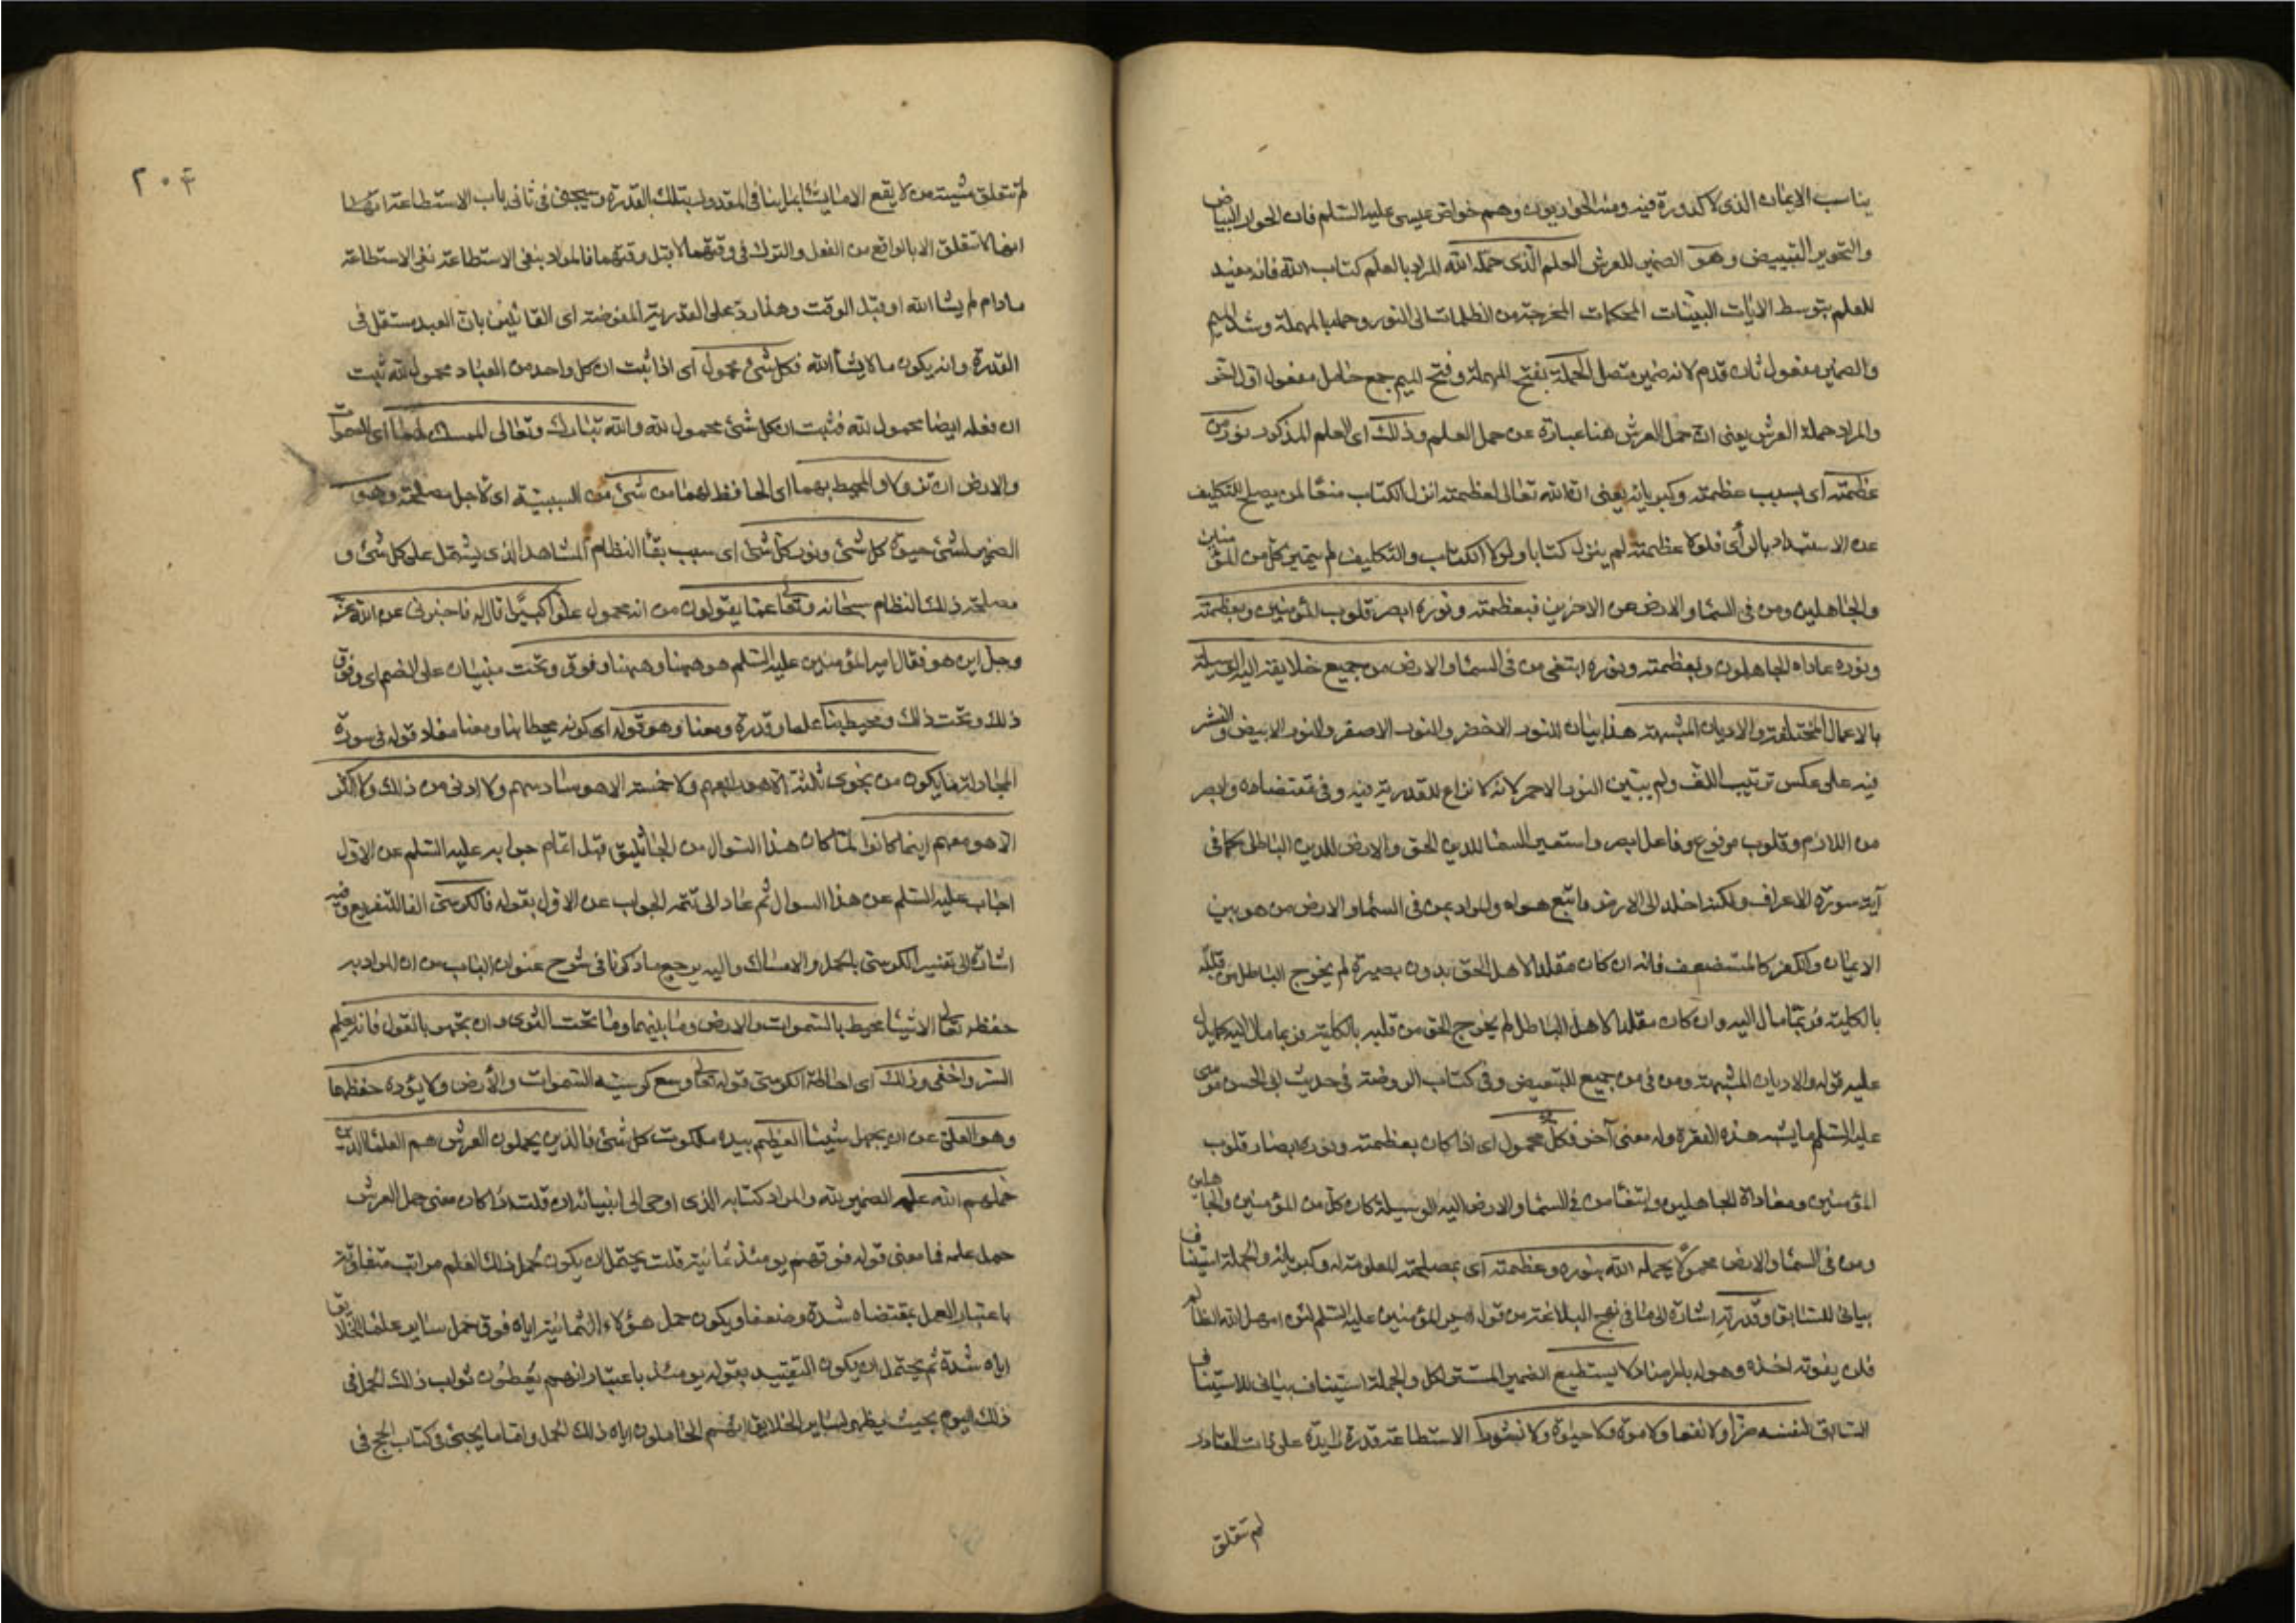 يناسب الايمان الذي لا كدورة فيه ومنه الحواريون وهم خواص عيسى عليه السّلم فان الحوار البياض
والتحوير التبييض وهو الضمير للعرش العلم الّذي حمله الله المراد بالعلم كتاب الله فانه مفيد
للعلم بتوسط الايات البيّنات المحكمات المخرجة من الظلمات الى النور وحمله بالمهملة وشد الميم
والضمير مفعول ثان قدم لانه ضمير متصل الحملة بفتح المهملة وفتح الميم جمع حامل مفعول اول اخر
والمراد حملة العرش يعني ان حمل العرش هنا عبارة عن حمل العلم وذلك اى العلم المذكور نور من
عظمته اى بسبب عظمته وكبريائه يعني ان الله تعالى لعظمته انزل الكتاب منعًا لمن يصلح للتكليف
عن الاستبداد بالرأى فلولا عظمته لم ينزل كتابا ولولا الكتاب والتكليف لم يتميز كل من المؤمنين
والجاهلين ومن في السماء والارض من الاخرين فبعظمته ونوره ابصر قلوب المؤمنين وبعظمته
ونوره عاداه الجاهلون وبعظمته ونوره ابتغى من في السماء والارض من جميع خلايقه اليه الوسيلة
بالاعمال المختلفة والاديان المشبهة هذا بيان للنور الاخضر والنور الاصفر والنور الابيض والنشر
فيه على عكس ترتيب اللف ولم يبين النور الاحمر لانه لا نزاع للقدرية فيه وفي مقتضاه وابصر
من اللازم وقلوب مرفوع وفاعل ابصر واستعير السماء للدين الحق والارض للدين الباطل كما في
آية سورة الاعراف ولكنه اخلد الى الارض واتبع هواه والمراد بمن في السماء والارض من هو بين
الايمان والكفر كالمستضعف فانه ان كان مقلدا لاهل الحق بدون بصيرة لم يخرج الباطل من قلبه
بالكلية فربما مال اليه وان كان مقلدا لاهل الباطل لم يخرج الحق من قلبه بالكلية فربما مال اليه كما يدل
عليه قوله والاديان المشبهة ومن في من جميع للتبعيض وفي كتاب الروضة في حديث ابي الحسن موسى
عليه السّلم ما يشبه هذه الفقرة وله معنى آخر فكل محمول اى اذا كان بعظمته ونوره ابصار قلوب
المؤمنين ومعاداة الجاهلين وابتغاء من في السماء والارض اليه الوسيلة كان كل من المؤمنين والجاهلين
ومن في السماء والارض محمولا يحمله الله بنوره وعظمته اى بمصلحته المعلومة له وكبريائه والجملة استيناف
بياني للسابق وقدرته اشارة الى ما في نهج البلاغة من قول امير المؤمنين عليه السّلم لئن امهل الله الظالم
فلن يفوته اخذه وهو له بالمرصاد لا يستطيع الضمير المستتر لكل والجملة استيناف بياني للاستيناف
السابق لنفسه ضرّا ولا نفعا ولا موتا ولا حيوة ولا نشورا الاستطاعة قدرة زايدة على ذات القادر
لم تتعلق
٢٠٤
لم تتعلق مشيته من لا يقع الا ما يشاء بما ينافي المقدور بتلك القدرة وسيجئ في ثاني باب الاستطاعة انها
ايضا لا تتعلق الا بالواقع من الفعل والترك في وقتهما لا قبل وقتهما فالمراد بنفي الاستطاعة نفي الاستطاعة
مادام لم يشاء الله او قبل الوقت وهذا ردّ على القدرية المفوضة اى القائلين بان العبد مستقل في
القدرة وانه يكون ما لا يشاء الله فكل شئ محمول اى اذا ثبت ان كل واحد من العباد محمول لله ثبت
ان فعله ايضا محمول لله فثبت ان كل شئ محمول لله والله تبارك وتعالى الممسك لهما اى السموات
والارض ان تزولا والمحيط بهما اى الحافظ لهما من شئ من السببية اى لاجل مصلحة وهو
الضمير لشئ حيوة كل شئ ونور كل شئ اى سبب بقاء النظام المشاهد الذي يشتمل على كل شئ و
مصلحة ذلك النظام سبحانه وتعالى عما يقولون من انه محمول علوّا كبيرًا قال له فاخبرني عن الله عز
وجل اين هو فقال امير المؤمنين عليه السّلم هو ههنا وههنا وفوق وتحت مبنيان على الضم اى وفوق
ذلك وتحت ذلك ومحيط بنا علما وقدرة ومعنا وهو قوله اى كونه محيطا بنا ومعنا مفاد قوله في سورة
المجادلة ما يكون من نجوى ثلثة الا هو رابعهم ولا خمسة الا هو سادسهم ولا ادنى من ذلك ولا اكثر
الا هو معهم اينما كانوا لما كان هذا السوال من الجاثليق قبل اتمام جوابه عليه السّلم عن الاول
اجاب عليه السّلم عن هذا السوال ثم عاد الى تتمة الجواب عن الاول بقوله فالكرسيّ الفا للتفريع وفيه
اشارة الى تفسير الكرسيّ بالحمل والامساك واليه يرجع ما ذكرنا في شرح عنوان الباب من ان المراد به
حفظه تعالى الاشياء محيط بالسّموات والارض وما بينهما وما تحت الثرى وان تجهر بالقول فانه يعلم
السّر واخفى وذلك اى احاطة الكرسيّ قوله تعالى وسع كرسيّه السّموات والأرض ولا يؤده حفظهما
وهو العليّ عن ان يجهل شيئا العظيم بيده ملكوت كل شئ فالذين يحملون العرش هم العلماء الذين
حملهم الله علمه الضمير لله والمراد كتابه الذي اوحى الى انبيائه ان قلت اذا كان معنى حمل العرش
حمل علمه فما معنى قوله فوقهم يومئذ ثمانية قلت يحتمل ان يكون لحمل ذلك العلم مراتب متفاوتة
باعتبار العمل بمقتضاه شدة وضعفا ويكون حمل هؤلاء الثمانية اياه فوق حمل ساير علماء الخلايق
اياه شدة ثم يحتمل ان يكون التقييد بقوله يومئذ باعتبار انهم يعطون ثواب ذلك الحمل في
ذلك اليوم بحيث يظهر لساير الخلايق انهم الحاملون اياه ذلك الحمل واما ما يجئ في كتاب الحج في